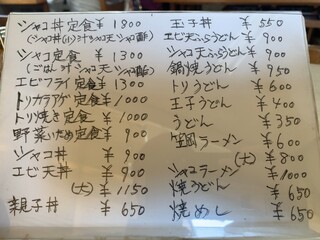 シャコ丼定食 ¥1800
シャコ定食 ¥1300
エビフライ定食 ¥1300
トリカラアゲ定食 ¥1000
トリ焼き定食 ¥1000
野菜いため定食 ¥900
シャコ丼 ¥900
エビ天丼 ¥900
(大) ¥1150
親子丼 ¥650
玉子丼 ¥550
エビ天ぷらうどん ¥900
シャコ天ぷらうどん ¥900
鍋焼うどん ¥950
トリうどん ¥600
玉子うどん ¥400
うどん ¥350
笠岡ラーメン ¥600
(大) ¥800
シャコラーメン ¥1000
焼うどん ¥650
焼めし ¥650